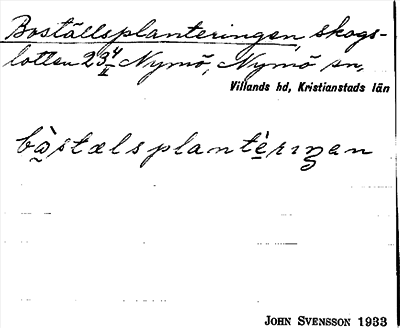 Boställsplanteringen, skogs-
lotten 23 4/II Nymö, Nymö sn,
Villands hd, Kristianstads län
bò̰stælsplantèrıŋen
JOHN SVENSSON 1933